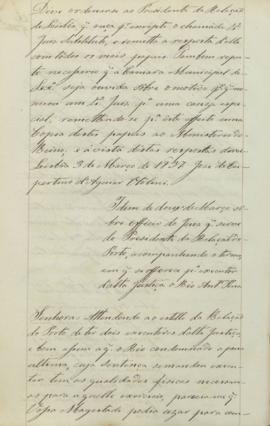 Dive ordenar ao Presidente da Relação
de Lisboa q. ouça q. escripto o chamado 1º
Juiz Substituto, e remetta a resposta delle
com todos os mais papeis. Tambem repu-
to necessario q. a Camara Municipal de
seja ouvida sobre o motivo q. q. no-
meou um 1º Juiz p. uma causa espe-
cial, remettendo-se p. este effeito uma
Copia destes papeis ao Ministerio do
Reino, e á vista destas respostas direi.
Lisboa 3 de Março de 1837 José de Cu-
pertino d'Aguiar Ottolini.
Idem de doze de Março so-
bre officio do Juiz q. serve
de Presidente da Relação do
Porto, acompanhando o termo,
em q. se offerece p. executor
da alta Justiça o Réo Ant.º
Senhora: Attendendo ao estillo da Relação
do Porto de ter dois executores da alta Justiça,
e bem assim a q. o Réo condemnado a pena
ultima, cuja sentença se mandou execu-
tar tem as qualidades fisicas necessa-
rias para aquelle exercicio, parecia-me q.
Vossa Magestade podia usar para com